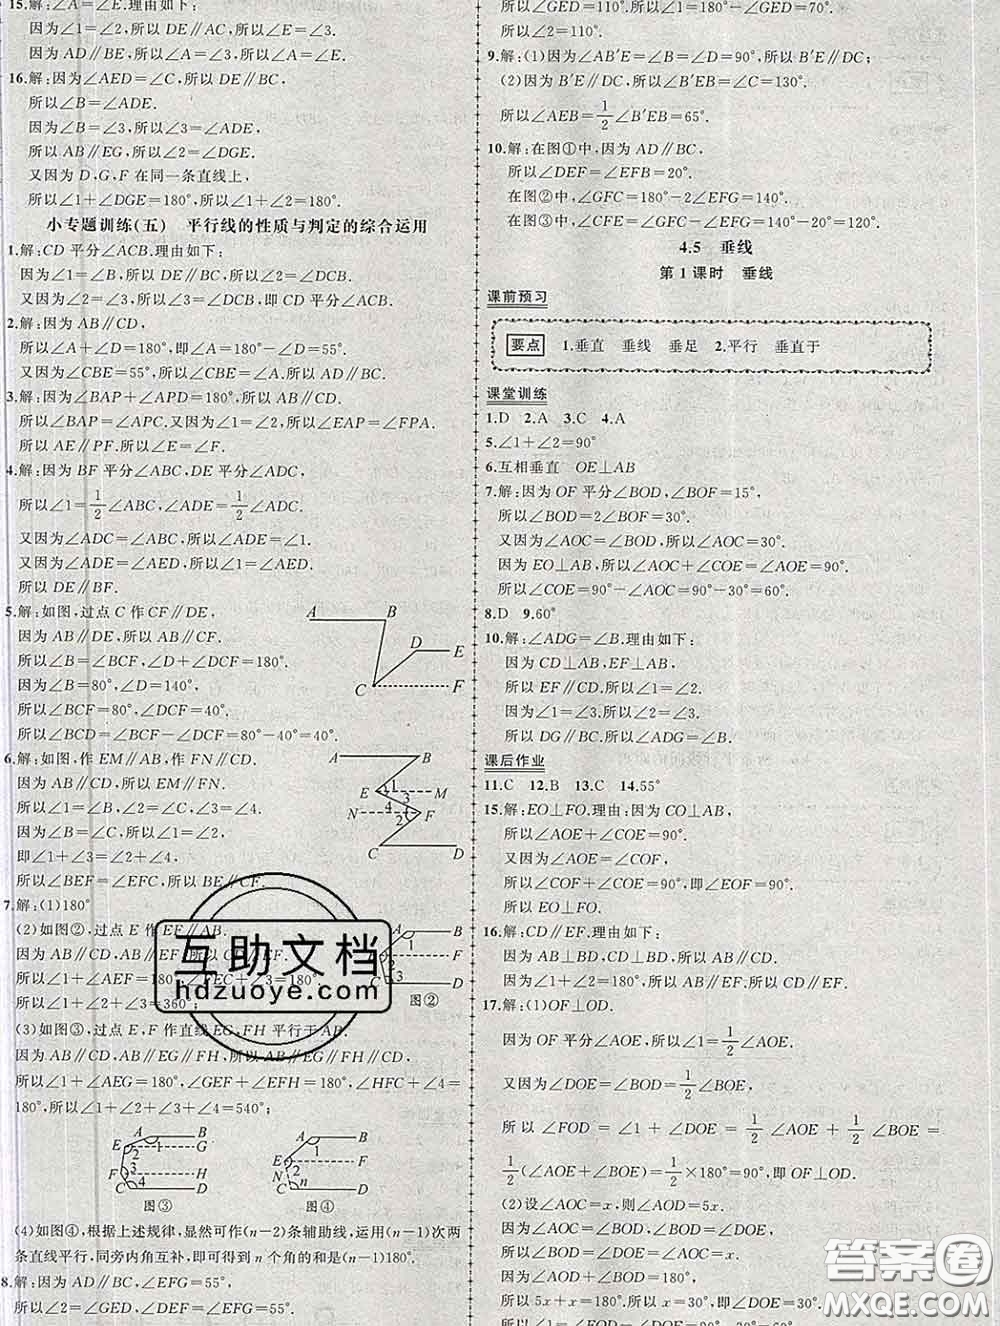 15.解:∠A=∠E.理由如下:
因为∠1=∠2,所以DE∥AC,所以∠E=∠3.
因为AD∥BE,所以∠A=∠3,所以∠A=∠E.
16.解:因为∠AED=∠C,所以DE∥BC,
所以∠B=∠ADE.
因为∠B=∠3,所以∠3=∠ADE,
所以AB∥EG,所以∠2=∠DGE.
又因为D,G,F在同一条直线上,
所以∠1+∠DGE=180°,所以∠1+∠2=180°.
小专题训练(五) 平行线的性质与判定的综合运用
1.解:CD平分∠ACB.理由如下:
因为∠1=∠B,所以DE∥BC,所以∠3=∠DCB.
又因为∠2=∠3,所以∠2=∠DCB,即CD平分∠ACB.
2.解:因为AB∥CD,
所以∠A+∠D=180°,即∠A=180°-∠D=55°.
又因为∠CBE=55°,所以∠A=∠CBE,所以AD∥BC.
3.解:因为∠BAP+∠APD=180°,所以AB∥CD.
所以∠BAP=∠APC.又因为∠1=∠2,所以∠EAP=∠APF,
所以AE∥PF.所以∠E=∠F.
4.解:因为BF平分∠ABC,DE平分∠ADC,
所以∠1=1/2∠ABC,∠ADE=1/2∠ADC.
又因为∠ADC=∠ABC,所以∠ADE=∠1.
又因为∠1=∠2,所以∠ADE=∠2.
所以DE∥BF.
5.解:如图,过点C作CF∥DE,
因为AB∥DE,所以AB∥CF.
所以∠B=∠BCF,∠D+∠DCF=180°.
因为∠B=80°,∠D=140°,
所以∠BCF=80°,∠DCF=40°.
所以∠BCD=∠BCF-∠DCF=80°-40°=40°.
A B
D E
C F
6.解:如图,作EM∥AB,作FN∥CD.
因为AB∥CD,所以EM∥FN.
所以∠B=∠1,∠3=∠4,∠C=∠2.
因为∠B=∠C,所以∠1=∠2.
即∠1+∠3=∠2+∠4,
所以∠BEF=∠EFC,所以BE∥CF.
A B
E 1 M
3
N 4 F
2
C D
7.解:(1)180°
(2)如图②,过点E作EF∥AB.
因为AB∥CD,所以
所以∠1+∠AEF=180°,∠FEC+∠3=180°.
所以∠1+∠2+∠3=360°;
A B
1
F
3
C D
图②
(3)如图③,过点E,F作直线EG,FH平行于AB.
因为AB∥CD,所以AB∥EG∥FH,所以AB∥EG∥FH∥CD,
所以∠1+∠AEG=180°,∠GEF+∠EFH=180°,∠HFC+∠4=
180°,所以∠1+∠2+∠3+∠4=540°;
A B
E 1 G
2
F 3 H
C 4 D
图③
A B
1
E
2
N
C n D
图④
(4)如图④,根据上述规律,显然可作(n-2)条辅助线,运用(n-1)次两
条直线平行,同旁内角互补,即可得到n个角的和是(n-1)180°.
8.解:因为AD∥BC,∠EFG=55°,
所以∠2=∠GED,∠DEF=∠EFG=55°.
所以∠GED=110°.所以∠1=180°-∠GED=70°.
∠2=110°.
9.解:(1)因为∠AB′E=∠B=∠D=90°,所以B′E∥DC;
(2)因为B′E∥DC,所以∠B′EB=∠C=130°.
所以∠AEB=1/2∠B′EB=65°.
10.解:在图①中,因为AD∥BC,
所以∠DEF=∠EFB=20°.
在图②中,∠GFC=180°-2∠EFG=140°.
在图③中,∠CFE=∠GFC-∠EFG=140°-20°=120°.
4.5 垂线
第1课时 垂线
课前预习
要点 1.垂直 垂线 垂足 2.平行 垂直于
课堂训练
1.D 2.A 3.C 4.A
5.∠1+∠2=90°
6.互相垂直 OE⊥AB
7.解:因为OF平分∠BOD,∠BOF=15°,
所以∠BOD=2∠BOF=30°.
又因为∠AOC=∠BOD,所以∠AOC=30°.
因为EO⊥AB,所以∠AOC+∠COE=∠AOE=90°,
所以∠COE=90°-∠AOC=90°-30°=60°.
8.D 9.60°
10.解:∠ADG=∠B.理由如下:
因为CD⊥AB,EF⊥AB,
所以EF∥CD.所以∠1=∠2.
又因为∠2=∠3,所以∠1=∠3.
所以DG∥BC.所以∠ADG=∠B.
课后作业
11.C 12.B 13.C 14.55°
15.解:EO⊥FO.理由:因为CO⊥AB,
所以∠AOE+∠COE=90°.
又因为∠AOE=∠COF,
所以∠COF+∠COE=90°,即∠EOF=90°.
所以EO⊥FO.
16.解:CD∥EF.理由如下:
因为AB⊥BD,CD⊥BD,所以AB∥CD.
又因为∠1+∠2=180°,所以AB∥EF,所以CD∥EF.
17.解:(1)OF⊥OD.
因为OF平分∠AOE,所以∠FOE=1/2∠AOE.
又因为∠DOE=∠BOD=1/2∠BOE,
所以∠FOD=∠1+∠DOE=1/2∠AOE+1/2∠BOE=
1/2(∠AOE+∠BOE)=1/2×180°=90°.即OF⊥OD.
(2)设∠AOC=x,则∠AOD=5x.
因为∠AOC=∠BOD,∠BOD=∠DOE,
所以∠DOE=x.
因为∠AOD+∠BOD=180°,
所以5x+x=180°,所以x=30°,即∠DOE=30°.
互助文档
hdzuoye.com
答案圈
MXQE.COM